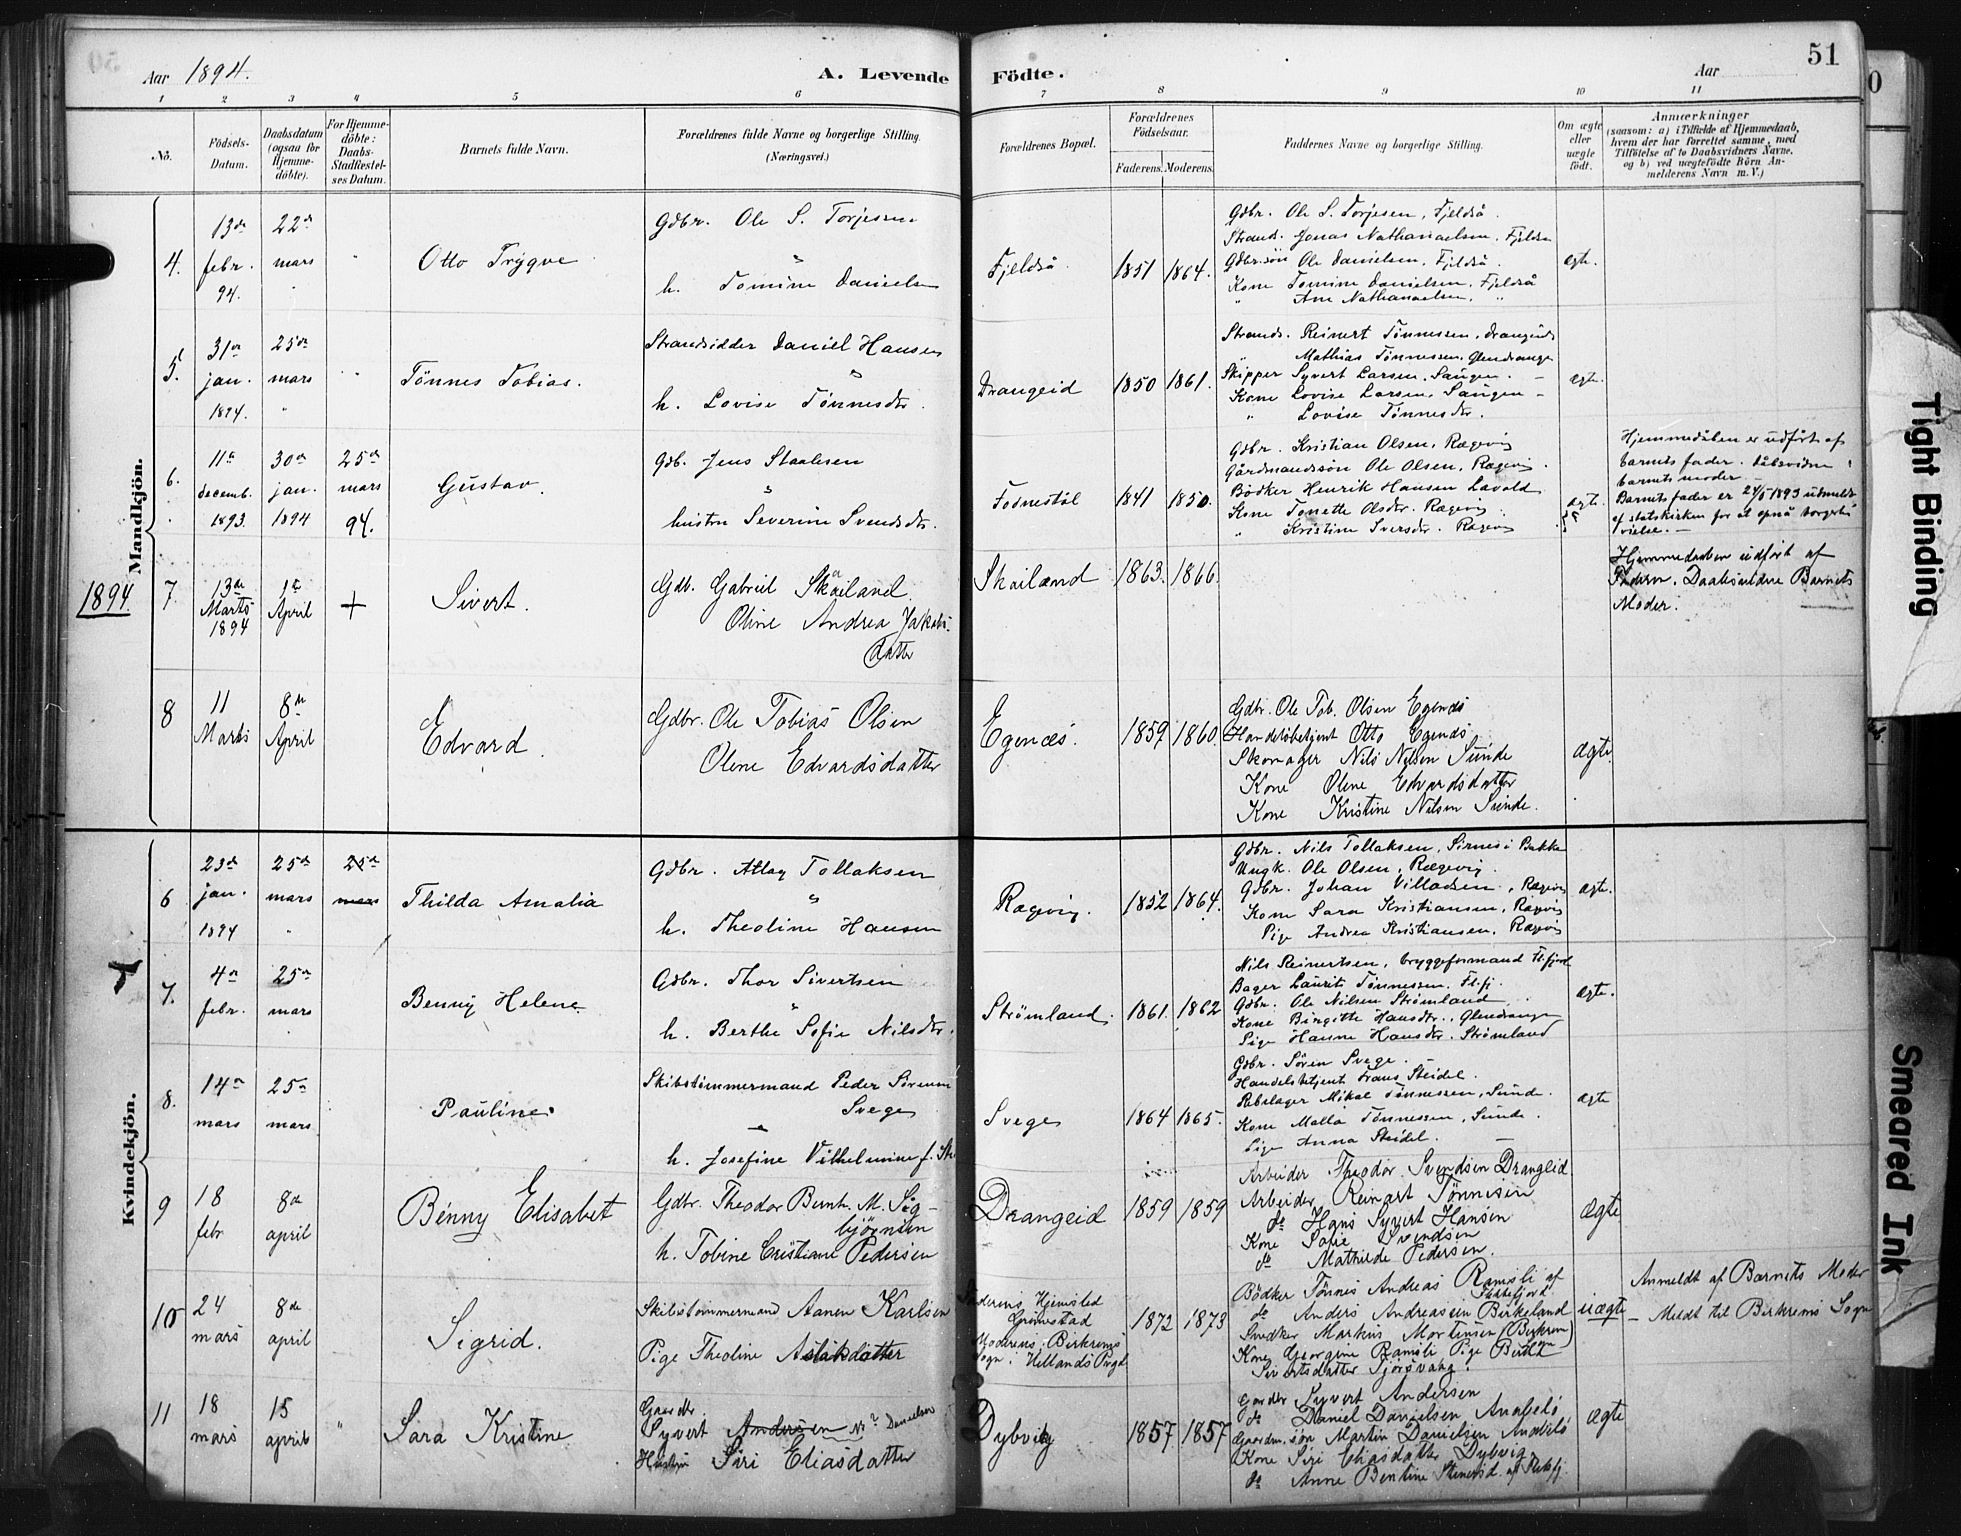 Aar 1894.
A. Levende Födte.
Aar
51
1 2 3 4 5 6 7 8 9 10 11
No.
Födsels-Datum.
Daabsdatum (ogsaa for Hjemme-döbte).
For Hjemme-döbte: Daabs-Stadfæstel-ses Datum.
Barnets fulde Navn.
Forældrenes fulde Navne og borgerlige Stilling.
(Næringsvei.)
Forældrenes Bopæl.
Forældrenes Födselsaar.
Faderens. Moderens.
Faddernes Navne og borgerlige Stilling.
Om ægte eller uægte födt.
Anmærkninger
(saasom: a) i Tilfælde af Hjemmedaab,
hvem der har forrettet samme, med
Tilföielse af to Daabsvidners Navne.
og b) ved uægtefödte Börn An-
melderens Navn m. V.)
1894
Mandkjön.
4. 13de febr. 94. 22de mars " Otto Trygve
Gdbr. Ole S. Torjesen
h. Tomine Danielsen
Fjeldså 1851 1864.
Gdbr. Ole S. Torjesen, Fjeldså.
Strands. Jonas Nathanaelsen, Fjeldså
Gdbr.søn Ole Danielsen, Fjeldså.
Kone Tomine Danielsen, Fjeldså
" Ane Nathanaelsen, "
ægte.
5. 31te jan. 1894. 25de mars " Tönnes Tobias.
Strandsidder Daniel Hansen
h. Lovise Tönnesdtr.
Drangeid 1850 1861.
Strands. Reinert Tönnessen, Drangeid
" Mathias Tönnessen, Glendrange
Skipper Syvert Larsen, Saugen.
Kone Lovise Larsen, Saugen
" Lovise Tönnesdtr.
ægte.
6. 11te decemb. 1893. 30de jan. 1894 25de mars 94. Gustav.
Gdb. Jens Staalesen
hustru Severine Svendsdtr.
Fodnestöl 1841 1850.
Gdbr. Kristian Olsen, Rægevig
Gårdmandssön Ole Olsen, Rægevig.
Bödker Henrik Hansen Lavold
Kone Tonette Olsdtr. Rægevig.
" Kristine Iversdtr. Rægevig
ægte.
Hjemmedåben er udfört af
barnets fader. dåbsvidne:
barnets moder.
Barnets fader er 24/5 1893 utmeldt
af statskirken for at opnå borgerlig
vielse.
7. 13de Marts 1894 1ste April + Sivert.
Gdb. Gabriel Skailand.
Oline Andrea Jakobs-
datter
Skailand 1863. 1866.
Hjemmedaaben udfört af
Faderen. Daabsvidne Barnets
Moder.
8 11 Marts 8de April Edvard.
Gdbr. Ole Tobias Olsen
Olene Edvardsdatter
Egenæs. 1859 1860.
Gdbr. Ole Tob. Olsen Egenæs
Handelsbetjent Otto Egenæs
Skomager Nils Nilsen Sunde
Kone Olene Edvardsdatter
Kone Kristine Nilsen Sunde.
ægte.
Kvindekjön.
6 23de jan. 1894 25de mars 25de mars Thilda Amalia
Gdbr. Atlag Tollaksen
h. Theoline Hansen
Rægevig. 1852 1864.
Gdbr. Nils Tollaksen, Sirnes i Bakke
Ungk. Ole Olsen, Rægevig.
Gdbr. Johan Villadsen, Rægevig
Kone Sara Kristiansen, Rægevig
Pige Andrea Kristiansen, Rægevig
ægte.
7. 4de febr. 25de mars Benny Helene
Gdbr. Thor Sivertsen
h. Berthe Sofie Nilsdtr.
Strömland. 1861. 1862
Nils Reinertsen, bryggeformand Fl.fjord
Bager Laurits Tönnessen. Fl.fj.
Gdbr. Ole Nilsen Strömland
Kone Birgitte Hansdtr., Glendrange
Pige Hanne Hansdtr. Strömland
ægte.
8. 14de mars 25de mars. Pauline.
Skibstömmermand Peder Sörensen
Svege
h. Josefine Vilhelmine f.
Svege 1864 1865.
Gdbr. Sören Svege.
Handelsbetjent Frans Steidel.
Rebslager Mikal Tönnessen, Sunde.
Kone Malla Tönnessen, Sunde.
Pige Anna Steidel.
ægte
9 18 febr 8de april Benny Elisabet
Gdbr. Theodor Bernh. M. Sig-
björnsen
h. Tobine Cristiane Pedersen
Drangeid 1859 1859
Arbeider Theodor Svendsen Drangeid
Arbeider Reinart Tönnesen
do Hans Syvert Hansen
Kone Sofie Svendsen
do Mathilde Pedersen.
Ægte
10 24 mars 8de april Sigrid.
Skibstömmermand Aanen Karlsen
Pige Theoline Aslaksdatter
Faderens Hjemsted
Grimstad
Moderens: Birkrems
Sogn. Hellands Prgd
1872 1873
Bödker Tönnes Andreas Ramsli af
Flekkefjord
do Anders Andreassen Birkeland
Snedker Markus Mortensen (Birkrem)
Kone Georgine Ramsli Pige Berthe
Sivertsdatter Sjörsvaag.
uægte
Anmeldt af Barnets Moder
– Meldt til Birkrems Sogn
11 18 mars 15 april " Sara Kristine
Gaardbr.
Syvert Andersen N? Danielsen
Hustru Siri Eliasdatter
Dybvig 1857 1857
Gaardbr Syvert Andersen
do Daniel Danielsen Anabelö
Gaardm. sön Martin Danielsen Anabelö
Kone Siri Eliasdatter Dybvig
do Anne Bentine Stenersd. af Flekkfj.
Ægte
Tight Binding
Smeared Ink